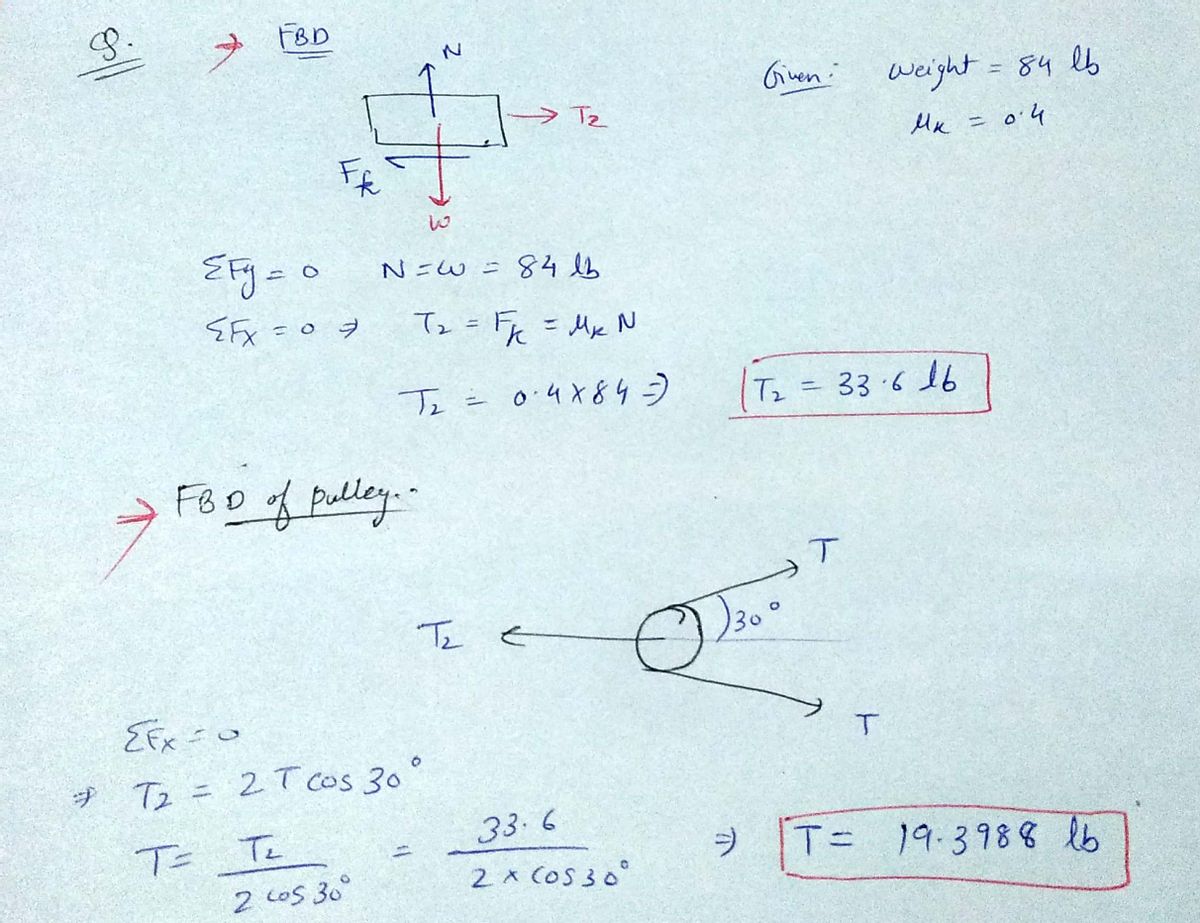 Q. → FBD
Given: weight = 84 lb
μk = 0.4
N
T2
Fk
W
ΣFy = 0 N = W = 84 lb
ΣFx = 0 ⇒ T2 = Fk = μk N
T2 = 0.4 × 84 ⇒ T2 = 33.6 lb
→ FBD of pulley..
T
30°
T2
T
ΣFx = 0
⇒ T2 = 2 T cos 30°
T = T2 / 2 cos 30° = 33.6 / 2 × cos 30° ⇒ T = 19.3988 lb